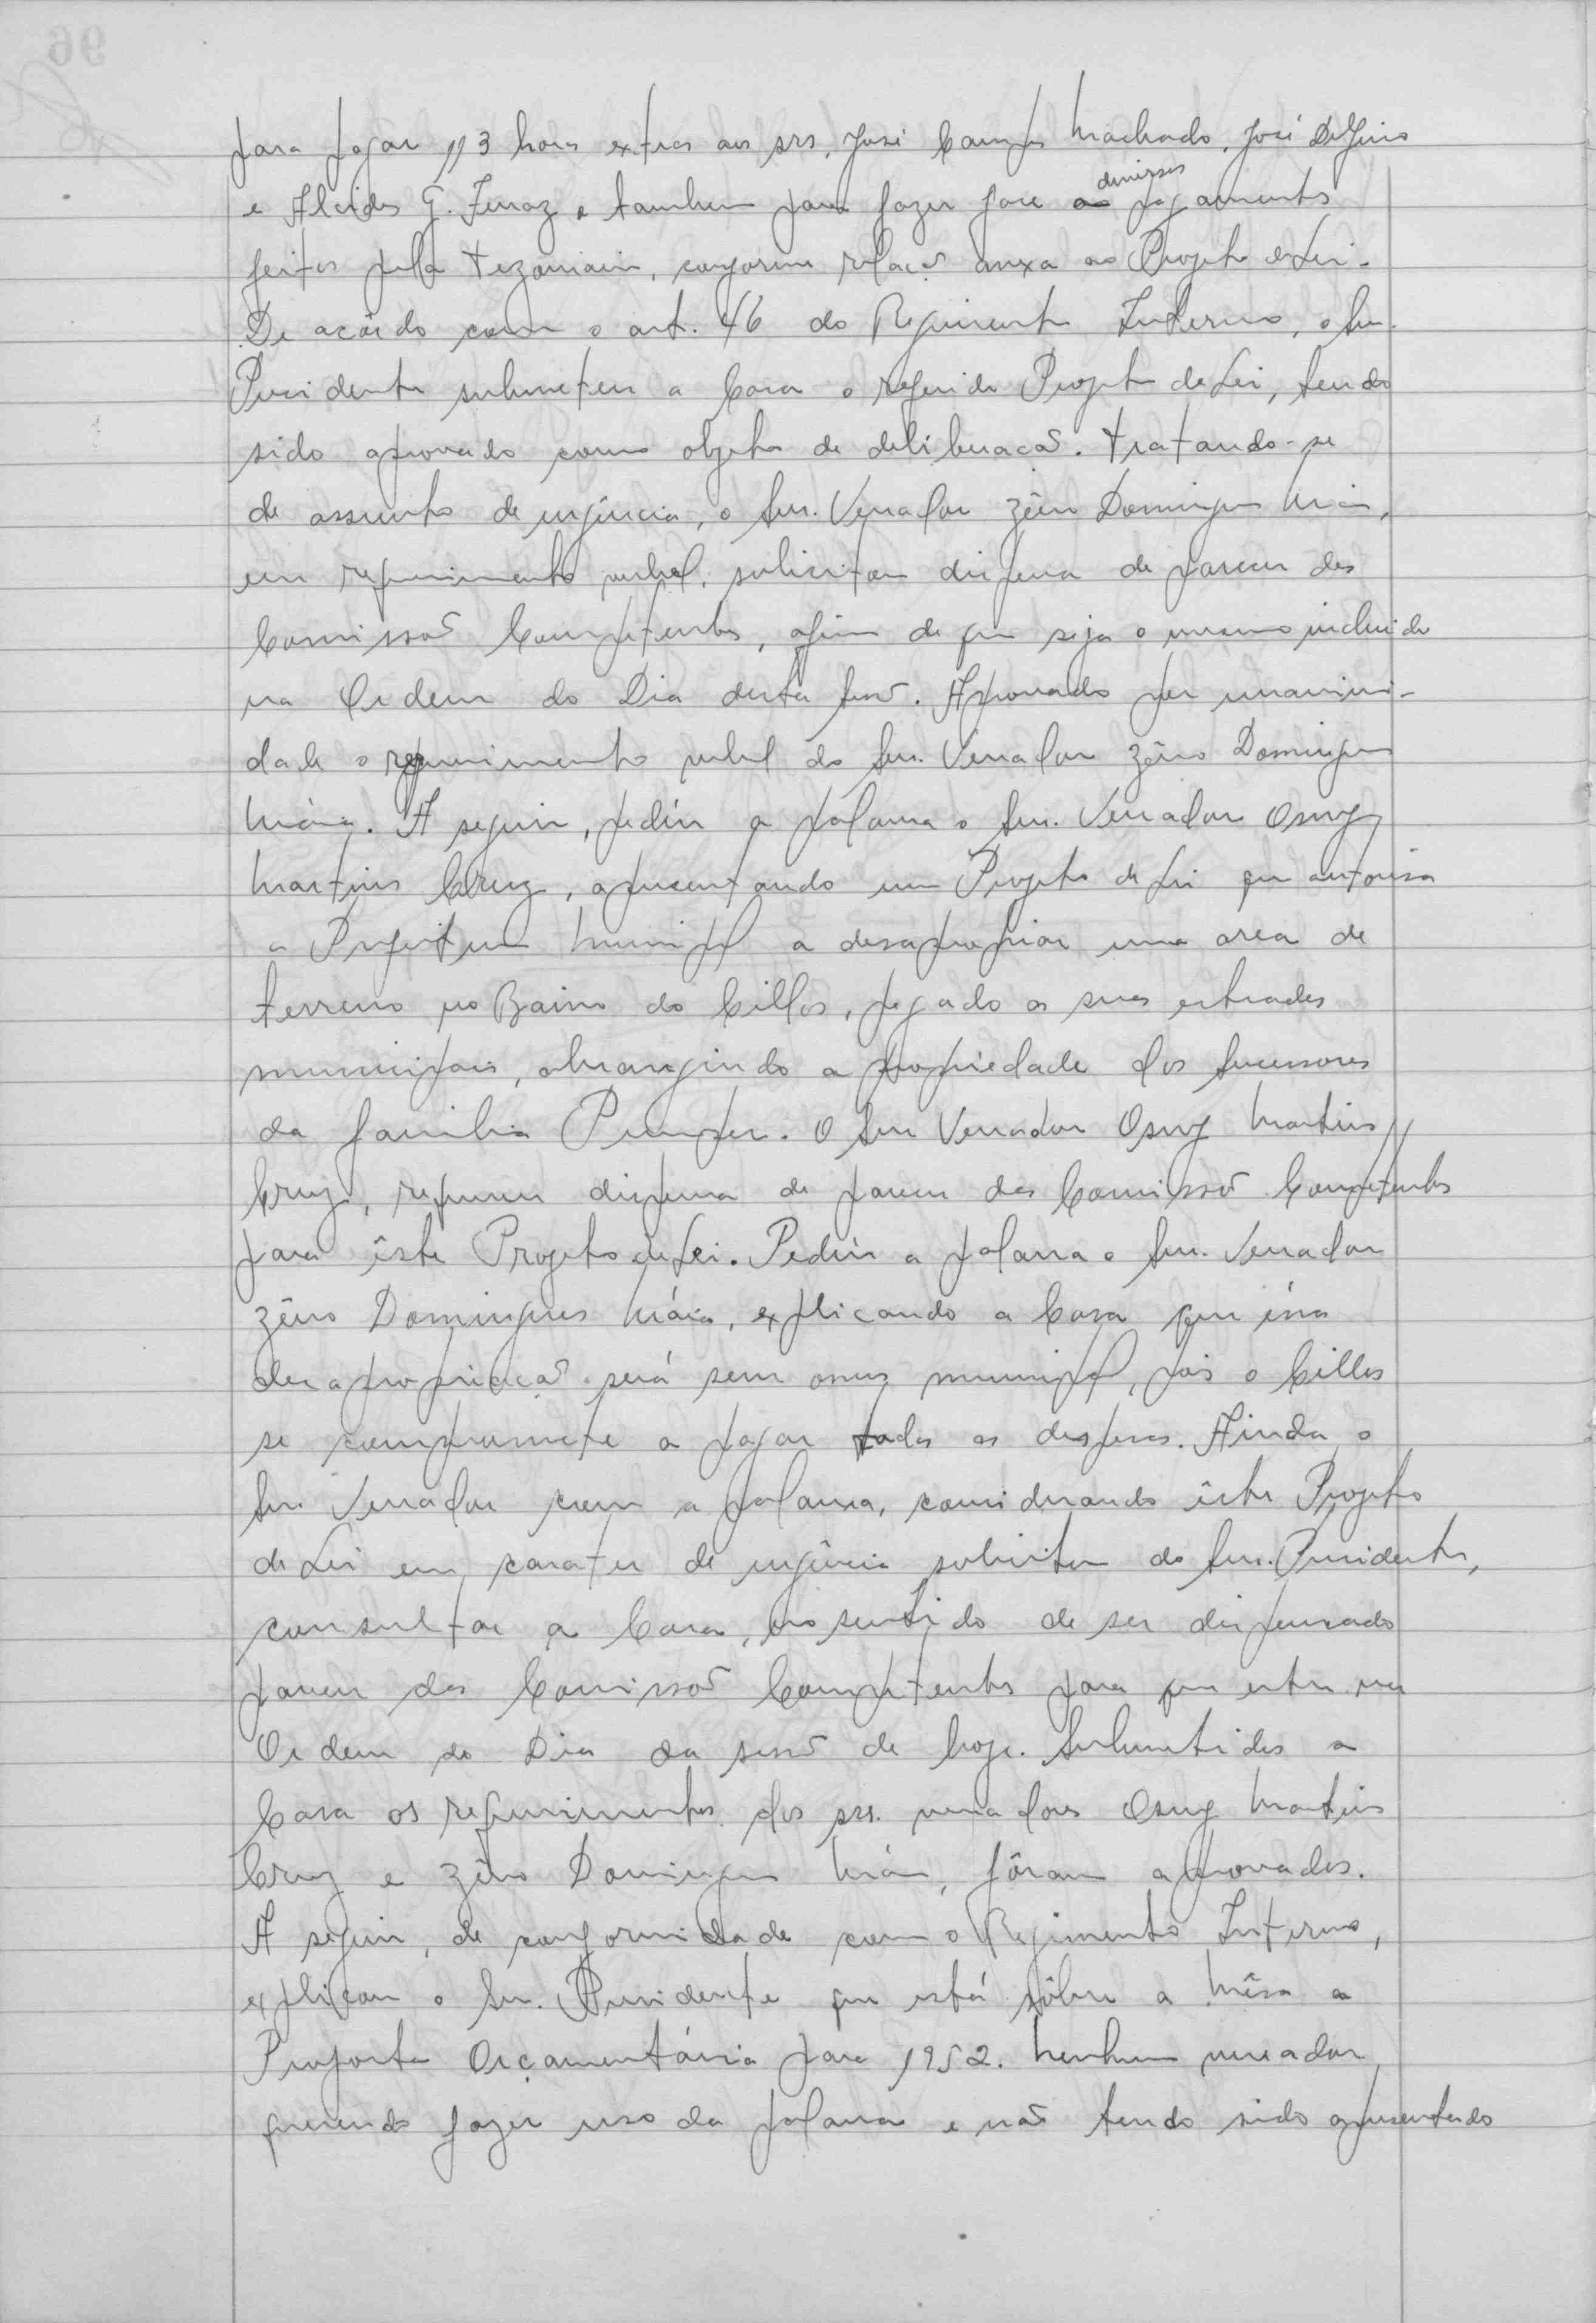 para pagar 113 horas extras aos srs. José Campos Machado, José Delfino
e Alcides G. Ferraz e tambem para fazer face a diversos pagamentos
feitos pela Tezouraria, conforme relacão anexa ao Projeto de Lei.
De acôrdo com o art. 46 do Regimento Interno, o Snr.
Presidente submeteu a Casa o referido Projeto de Lei, tendo
sido aprovado como objeto de deliberacão. Tratando-se
de assunto de urgência, o Snr. Vereador Zêno Domingues Máia,
em requerimento verbal, solicitou dispensa de parecer das
Comissão Competentes, afim de que seja o mesmo incluido
na Ordem do Dia desta sessão. Aprovado por unanimi-
dade o requerimento verbal do Snr. Vereador Zêno Domingues
Máia. A seguir, pediu a palavra o Snr. Vereador Osny
Martins Cruz, apresentando um Projeto de Lei que autorisa
a Prefeitura Municipal a desapropriar uma area de
terreno no Bairro do Cillos, pegado as suas estradas
municipais, abrangindo a propriedade dos Sucessores
da familia O Snr Vereador Osny Martins
Cruz, requereu dispensa de parecer das Comissão Competentes
para êste Projeto de Lei. Pediu a palavra o Snr. Vereador
Zêno Domingues Máia, explicando a Casa que éssa
desapropriacão será sem onus municipal, pois o Cillos
se compromete a pagar todas as despesas. Ainda o
Snr. Vereador com a palavra, considerando êste Projeto
de Lei em carater de urgência solicitou do Snr. Presidente,
consultar a Casa, no sentido de ser dispensado
parecer das Comissão Competentes para que entre na
Ordem do Dia da sessão de hoje. Submetidos a
Casa os requerimentos dos srs. vereadores Osny Martins
Cruz e Zêno Domingues Máia, fôram aprovados.
A seguir, de conformidade com o Regimento Interno,
explicou o Snr. Presidente que está sôbre a Mêsa a
Proposta Orçamentária para 1952. Nenhum vereador
querendo fazer uso da palavra e não tendo sido apresentado